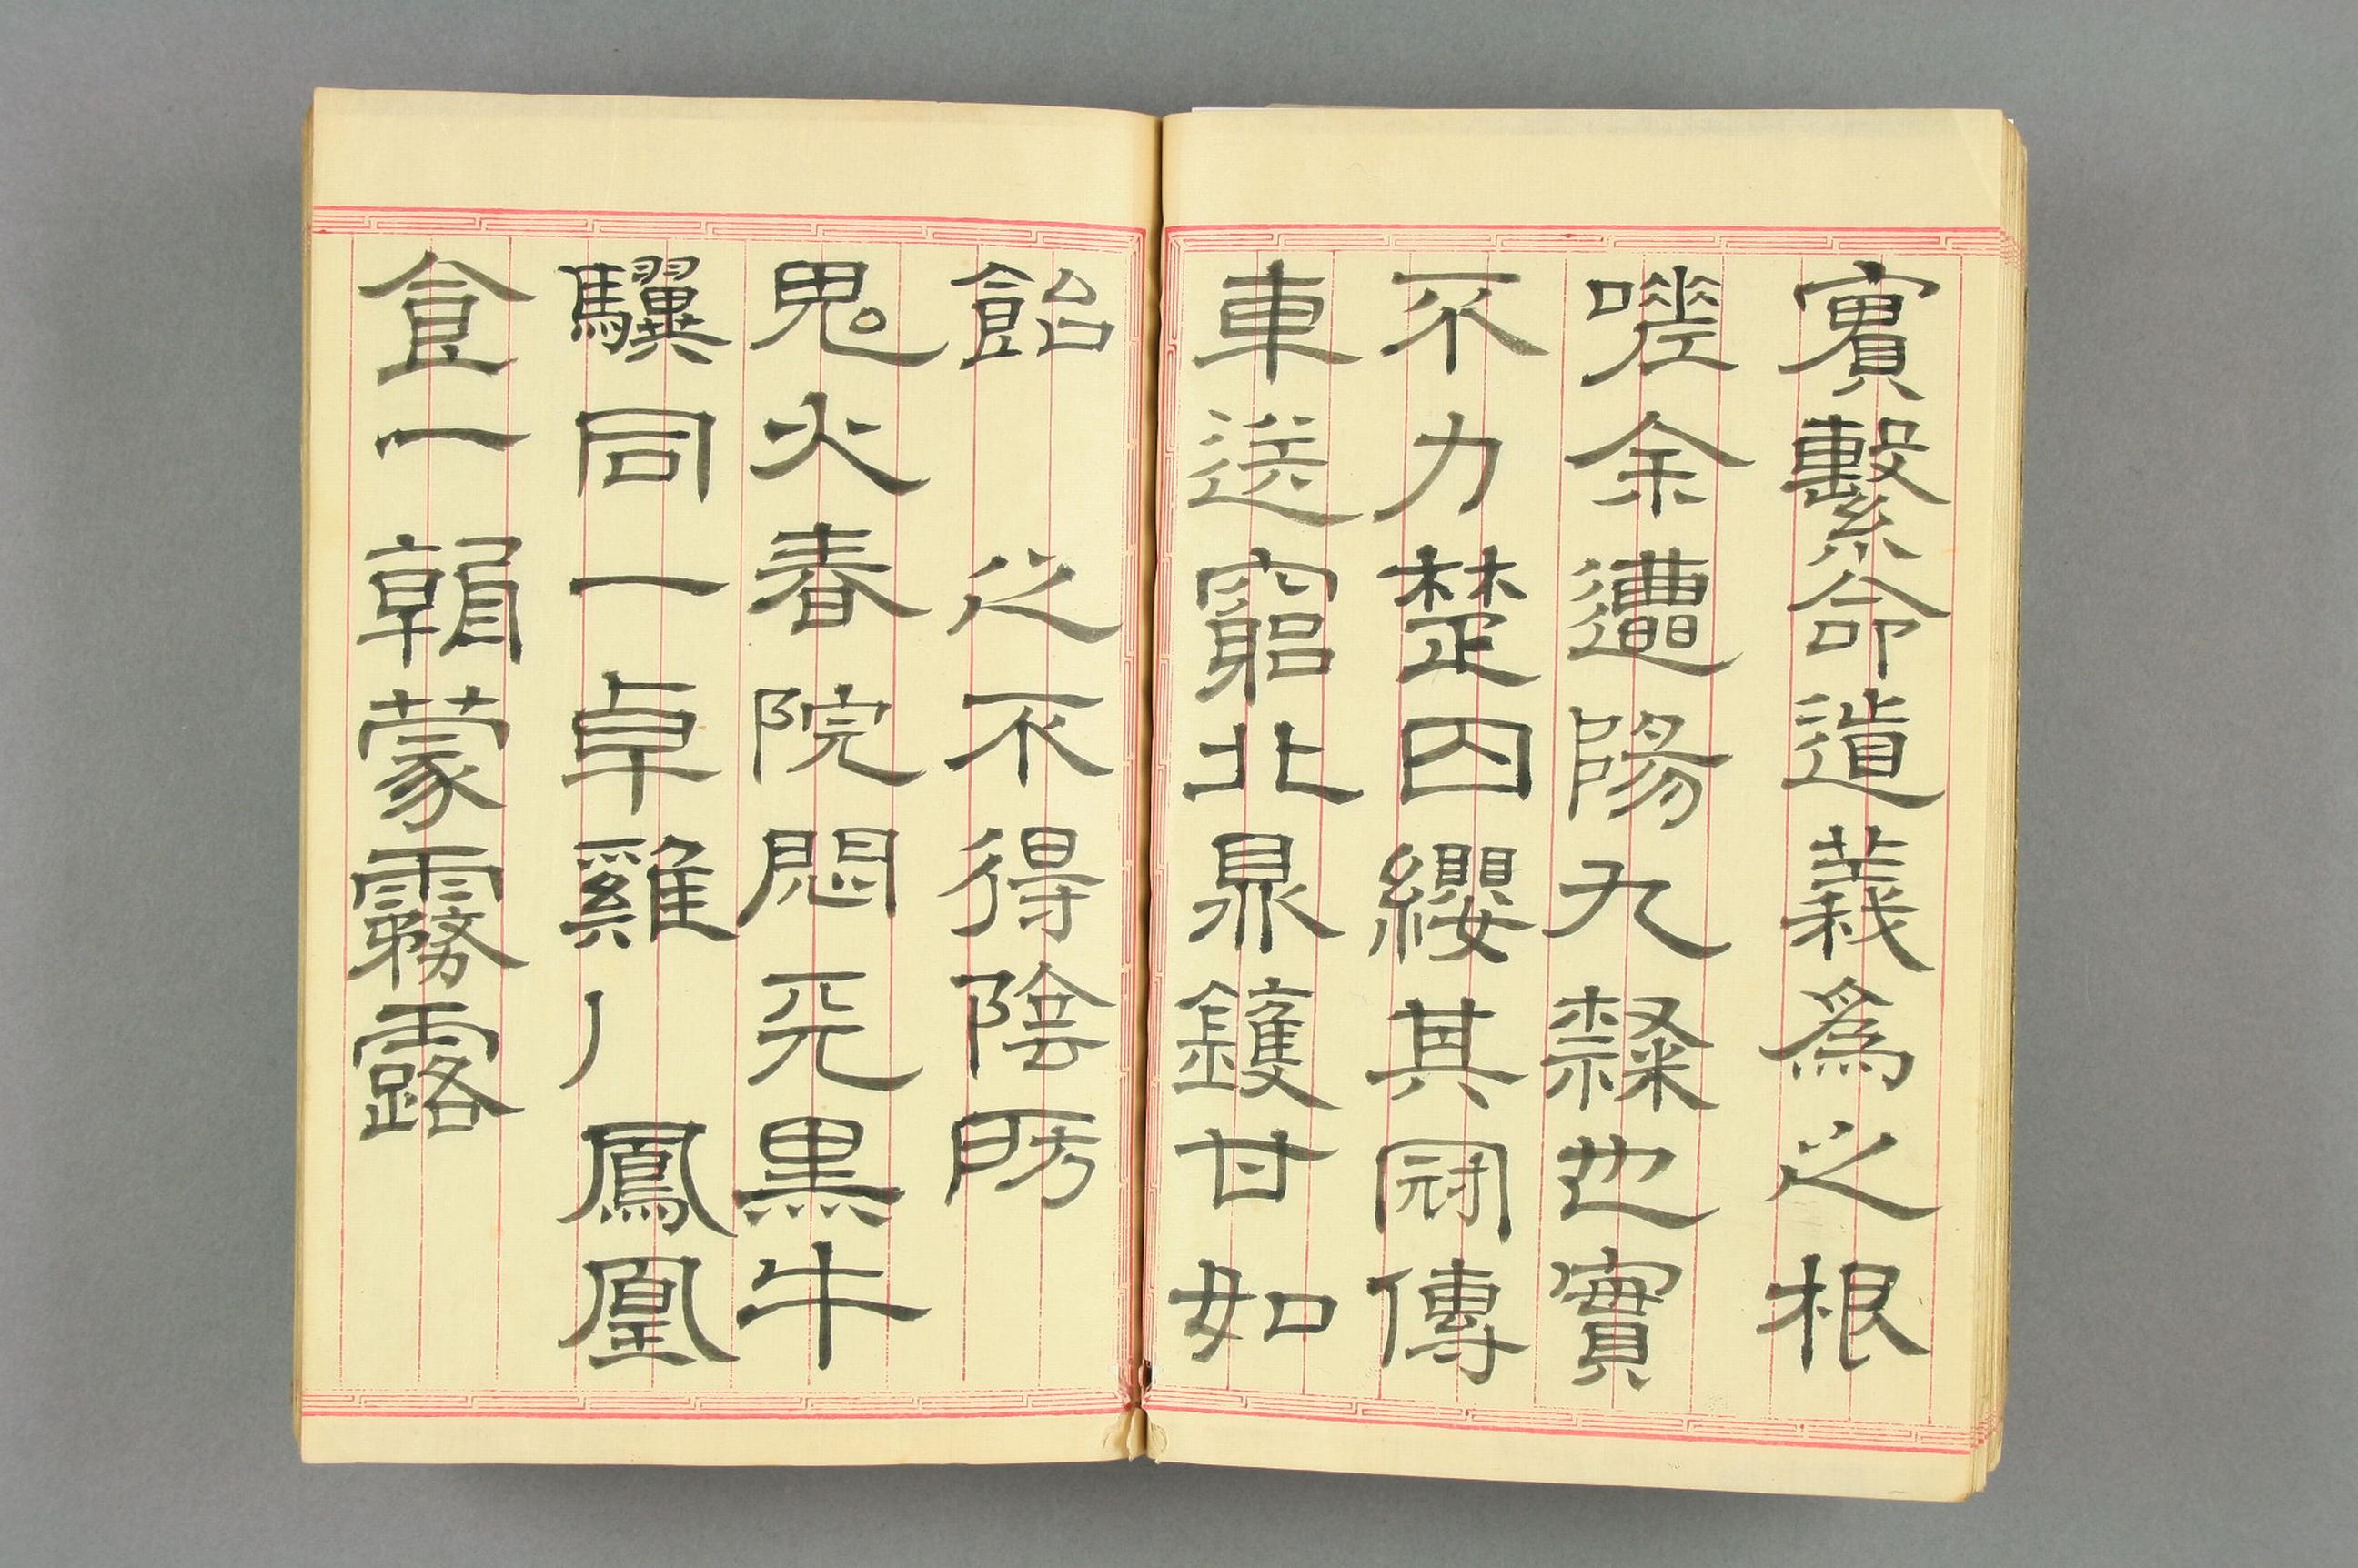 實繫命道義爲之根
嗟余遭陽九隸也實
不力楚囚纓其冠傳
車送竆北鼎鑊甘如
飴之不得陰房
鬼火春院閟天黑牛
驥同一皁雞鳳凰
食一朝蒙霧露